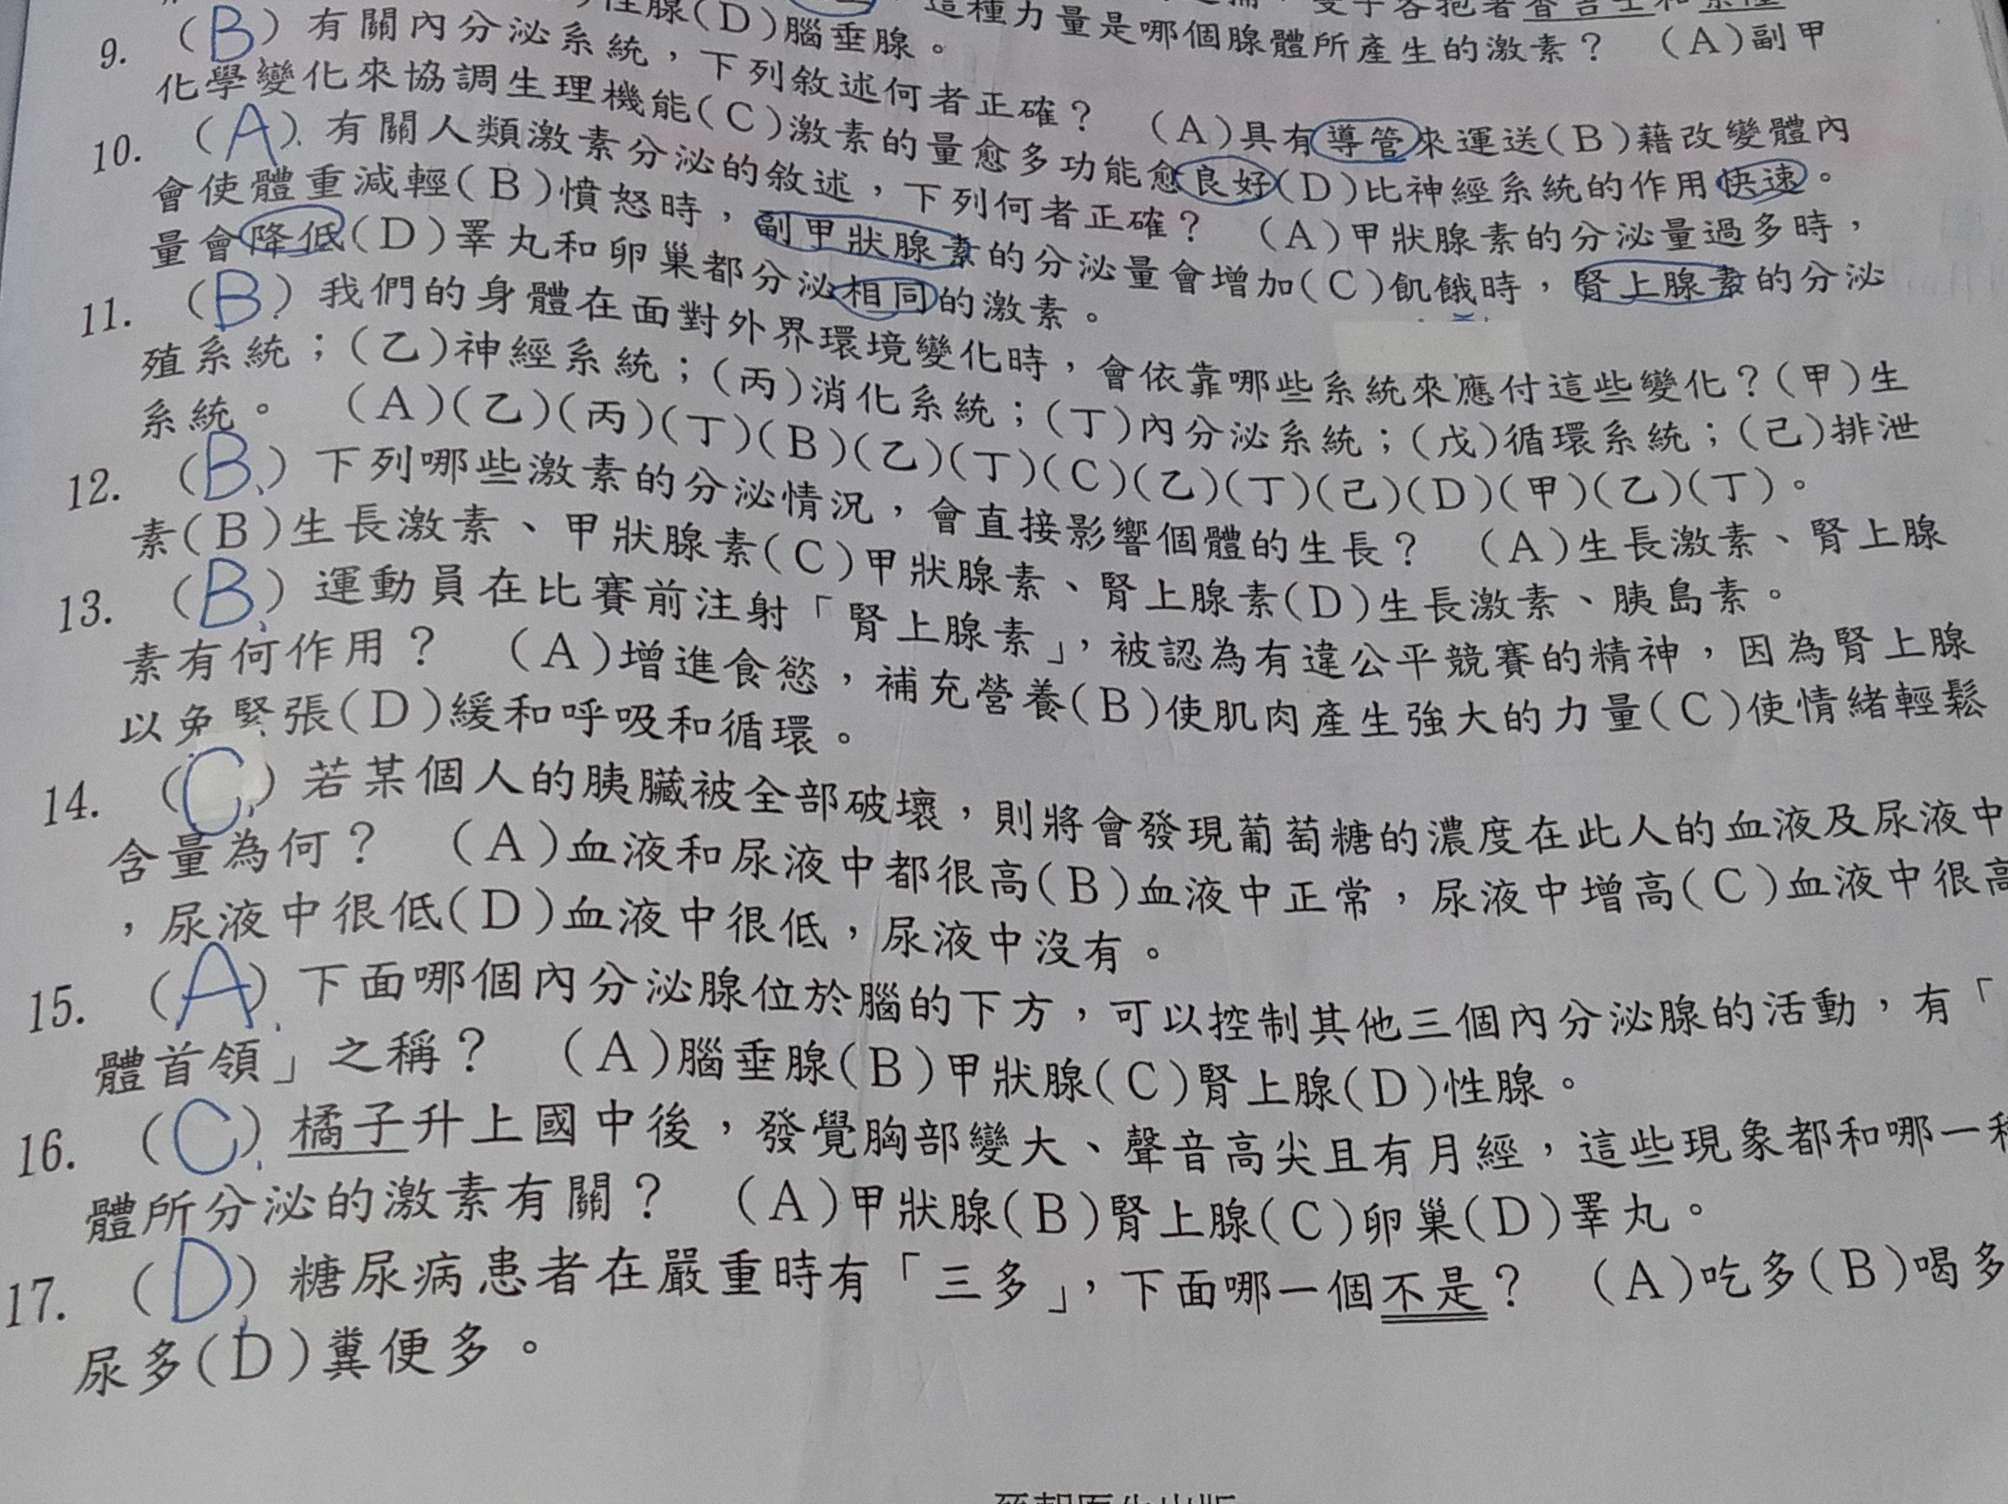 性腺(D)腦垂腺。
這種力量是哪個腺體所產生的激素？ (A)副甲
9. (B) 有關內分泌系統，下列敘述何者正確？ (A)具有導管來運送(B)藉改變體內
化學變化來協調生理機能(C)激素的量愈多功能愈良好(D)比神經系統的作用快速。
10. (A) 有關人類激素分泌的敘述，下列何者正確？ (A)甲狀腺素的分泌量過多時，
會使體重減輕(B)憤怒時，副甲狀腺素的分泌量會增加(C)飢餓時，腎上腺素的分泌
量會降低(D)睪丸和卵巢都分泌相同的激素。
11. (B) 我們的身體在面對外界環境變化時，會依靠哪些系統來應付這些變化？(甲)生
殖系統；(乙)神經系統；(丙)消化系統；(丁)內分泌系統；(戊)循環系統；(己)排泄
系統。 (A)(乙)(丙)(丁)(B)(乙)(丁)(C)(乙)(丁)(己)(D)(甲)(乙)(丁)。
12. (B) 下列哪些激素的分泌情況，會直接影響個體的生長？ (A)生長激素、腎上腺
素(B)生長激素、甲狀腺素(C)甲狀腺素、腎上腺素(D)生長激素、胰島素。
13. (B) 運動員在比賽前注射「腎上腺素」，被認為有違公平競賽的精神，因為腎上腺
素有何作用？ (A)增進食慾，補充營養(B)使肌肉產生強大的力量(C)使情緒輕鬆
以免緊張(D)緩和呼吸和循環。
14. (C) 若某個人的胰臟被全部破壞，則將會發現葡萄糖的濃度在此人的血液及尿液中
含量為何？ (A)血液和尿液中都很高(B)血液中正常，尿液中增高(C)血液中很高
，尿液中很低(D)血液中很低，尿液中沒有。
15. (A) 下面哪個內分泌腺位於腦的下方，可以控制其他三個內分泌腺的活動，有「
體首領」之稱？ (A)腦垂腺(B)甲狀腺(C)腎上腺(D)性腺。
16. (C) 橘子升上國中後，發覺胸部變大、聲音高尖且有月經，這些現象都和哪一
體所分泌的激素有關？ (A)甲狀腺(B)腎上腺(C)卵巢(D)睪丸。
17. (D) 糖尿病患者在嚴重時有「三多」，下面哪一個不是？ (A)吃多(B)喝多
尿多(D)糞便多。